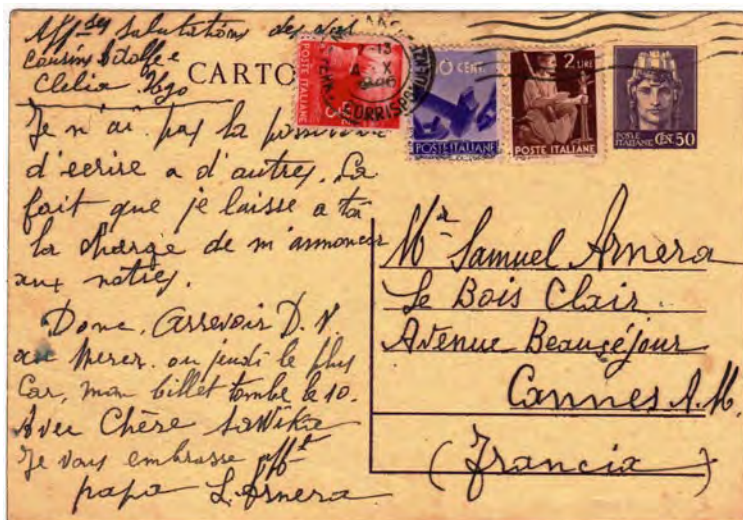 Aff.ses Salutations des deux
cousins et
Clelia Ugo
CARTO
Je n'ai pas la possibilité
d'ecrire a d'autres. La
fait que je laisse a toi
la charge de m'annoncer
aux notres.
Donc, Arrevoir D. V.
au Mercr. ou jeudi le plus
Car, mon billet tombe le 10.
Avec Chère
Je vous embrasse aff.t
papa L. Arnera
POSTE ITALIANE
CORRISPON
10 CENT.
POSTE ITALIANE
2 LIRE
POSTE ITALIANE
POSTE
ITALIANE CEN. 50
Mr Samuel Arnera
Le Bois Clair
Avenue Beauséjour
Cannes A. M.
(Francia)